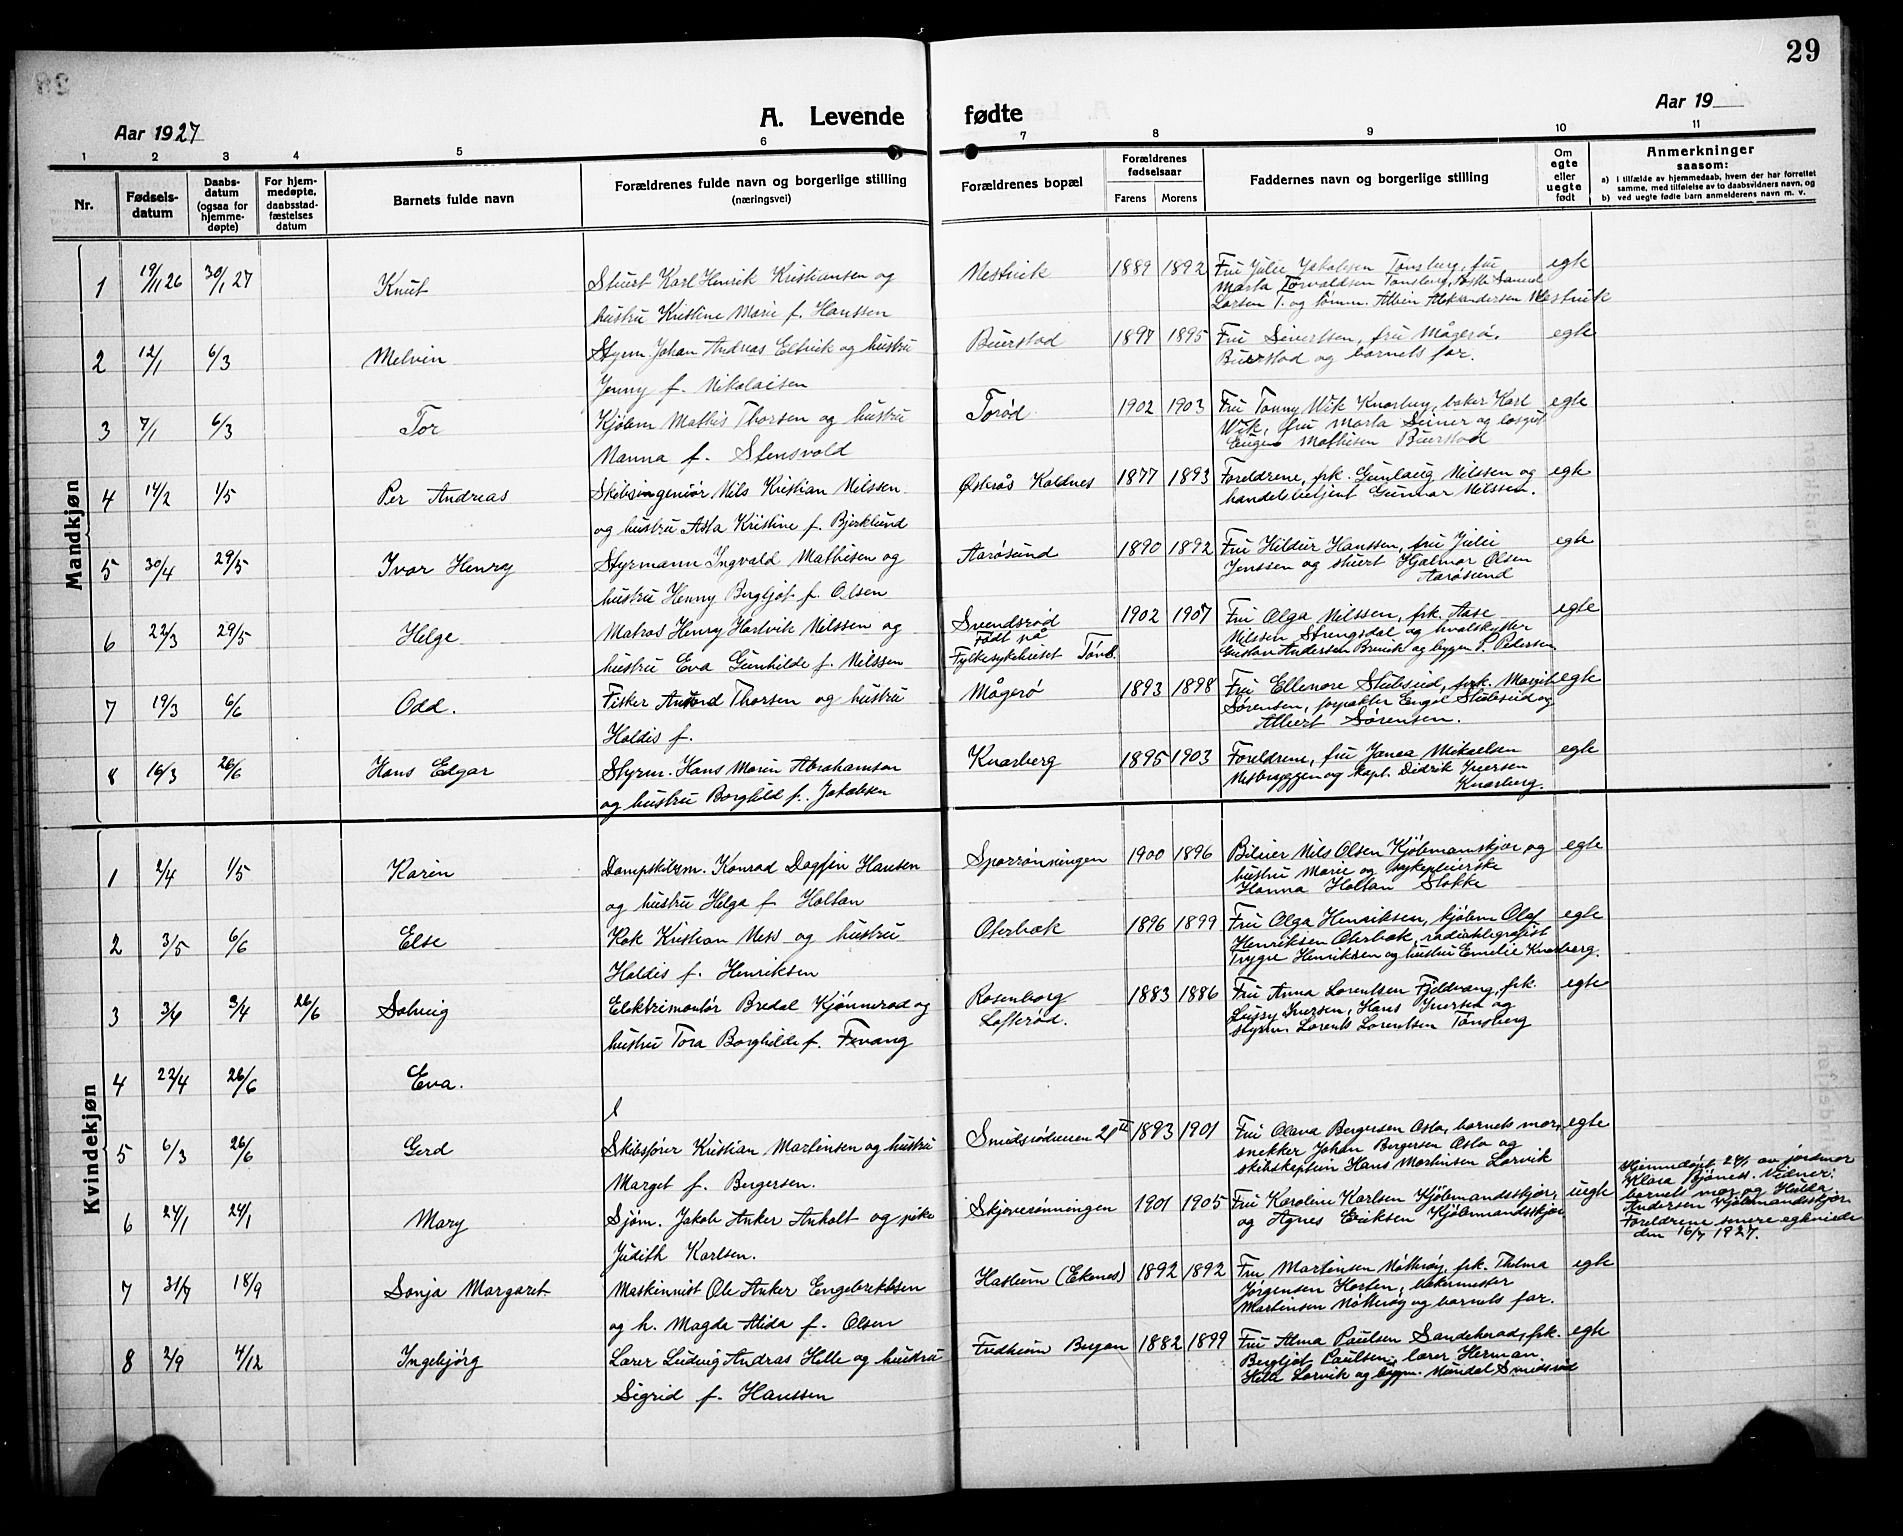 29
Aar 1927
A. Levende fødte
Aar 19
1 2 3 4 5 6 7 8 9 10 11
Nr.
Fødsels-
datum
Daabs-
datum
(ogsaa for
hjemme-
døpte)
For hjem-
medøpte,
daabsstad-
fæstelses
datum
Barnets fulde navn
Forældrenes fulde navn og borgerlige stilling
(næringsvei)
Forældrenes bopæl
Forældrenes
fødselsaar
Farens Morens
Faddernes navn og borgerlige stilling
Om
egte
eller
uegte
født
Anmerkninger
saasom:
a) i tilfælde av hjemmedaab, hvem der har forrettet
samme, med tilføielse av to daabsvidners navn, og
b) ved uegte fødte barn anmelderens navn m. v.
Mandkjøn
1 19/11 26 30/1 27 Knut
Stuert Karl Henrik Kristiansen og
hustru Kristine Marie f. Hanssen
Nestvik 1889 1892
Fru Julie Jakobsen Tønsberg, fru
Marta Torvaldsen Tønsberg,
Larsen T. og tømm. Aleksandersen Nestvik
egte
2 12/1 6/3 Melvin
Styrm. Johan Andreas Eltvik og hustru
Jenny f. Nikolaisen
Buerstad 1897 1895
Fru Sivertsen, fru Mågerø,
Buerstad og barnets far.
egte
3 7/1 6/3 Tor
Kjøbm Mathis Thorsen og hustru
Nanna f. Stensvold
Torød 1902 1903
Fru Tonny Wik Knarberg, baker Karl
Wik, fru Marta Seiner og
Eugen Mathisen Buerstad
egte
4 14/2 1/5 Per Andreas
Skibsingeniør Nils Kristian Nilssen
og hustru Asta Kristine f. Bjerklund
Østrås Kaldnes 1877 1893
Foreldrene, frk. Gunlaug Nilssen og
handelsbetjent Gunnar Nilssen.
egte
5 30/4 29/5 Ivar Henry
Styrmann Ingvald Mathisen og
hustru Henny Bergljot f. Olsen
Aarøsund 1890 1892
Fru Hildur Hanssen, fru Julie
Jenssen og stuert Hjalmar Olsen
Aarøsund
egte
6 22/3 29/5 Helge
Matros Henry Hartvik Nilssen og
hustru Eva Gunhilde f. Nilssen
Svendsrød
Født på
Fylkesykehuset Tønsb.
1902 1907
Fru Olga Nilssen, frk. Aase
Nilssen Strengsdal og hvalskytter
Gustav Andersen Brevik og byggm P. Pedersen
egte
7 19/3 6/6 Odd.
Fisker Thorsen og hustru
Haldis f.
Mågerø 1893 1898
Fru Ellenore Stubsrud, frk. Margit
Sørensen, forpakter Engel Stubsrud og
Albert Sørensen.
egte
8 16/3 26/6 Hans Edgar
Styrm. Hans Marin Abrahamson
og hustru Borghild f. Jakobsen
Knarberg 1895 1903
Foreldrene, fru Janea Mikaelsen
Nesbryggen og kapt. Didrik Iversen
Knarberg.
egte
Kvindekjøn
1 2/4 1/5 Karin
Dampskibsm. Konrad Dagfin Hansen
og hustru Helga f Holtan
Sporrønningen 1900 1896
Bileier Nils Olsen Kjøbmannskjær og
hustru Marie og sykepleierske
Hanna Holtan Stokke
egte
2 3/5 6/6 Else
Kok Kristian Ness og hustru
Haldis f. Henriksen
Oterbæk 1896 1899
Fru Olga Henriksen, kjøbm Olaf
Henriksen Oterbæk, radiotelegrafist
Trygve Henriksen og hustru Emelie Knarberg.
egte
3 3/4 26/6 Solveig
Elektrimontør Bredal Kjønnerød og
hustru Tora Borghilde f. Fevang
Rosenborg
Lofterød.
1883 1886
Fru Anna Lorentsen Fjeldvang, frk.
Lussy Iversen, Hans Iversen og
styrm. Lorents Lorentsen Tønsberg
egte
4 22/4 26/6 Eva.
5 6/3 26/6 Gerd
Skibsfører Kristian Martinsen og hustru
Marget f. Bergersen.
Smidsrødveien 1893 1901
Fru Olava Bergersen Oslo, barnets mor,
snekker Johan Bergersen Oslo og
skibskaptein Hans Martinsen Larvik
egte
6 24/1 24/1 Mary
Sjøm. Jakob Anker Anholt og pike
Judith Karlsen.
Skjeverønningen 1901 1905
Fru Karoline Karlsen Kjøbmandsskjær,
og Agnes Eriksen Kjøbmandsskjær
uegte
Hjemmedøpt 24/1 av jordmor
Klara Vidner:
barnets mor og Hulda
Andersen Kjøbmandsskjær
Foreldrene senere egteviede
den 16/7 1927.
7 31/7 18/9 Sonja Margaret
Maskinnist Ole Anker Engebrektsen
og h. Magda Alida f. Olsen
Haslum (Ekenes) 1892 1892
Fru Martinsen Nøtterøy, frk. Thelma
Jørgensen Horten,
Martinsen Nøtterøy og barnets far.
egte
8 2/9 4/12 Ingebjørg
Lærer Ludvig Andras Helle og hustru
Sigrid f. Hanssen
Fredheim Bergan 1882 1899
Fru Alma Paulsen Sandehrad, frk.
Bergljot Paulsen, lærer Herman
Helle Larvik og byggm. Mandal Smidsrød
egte